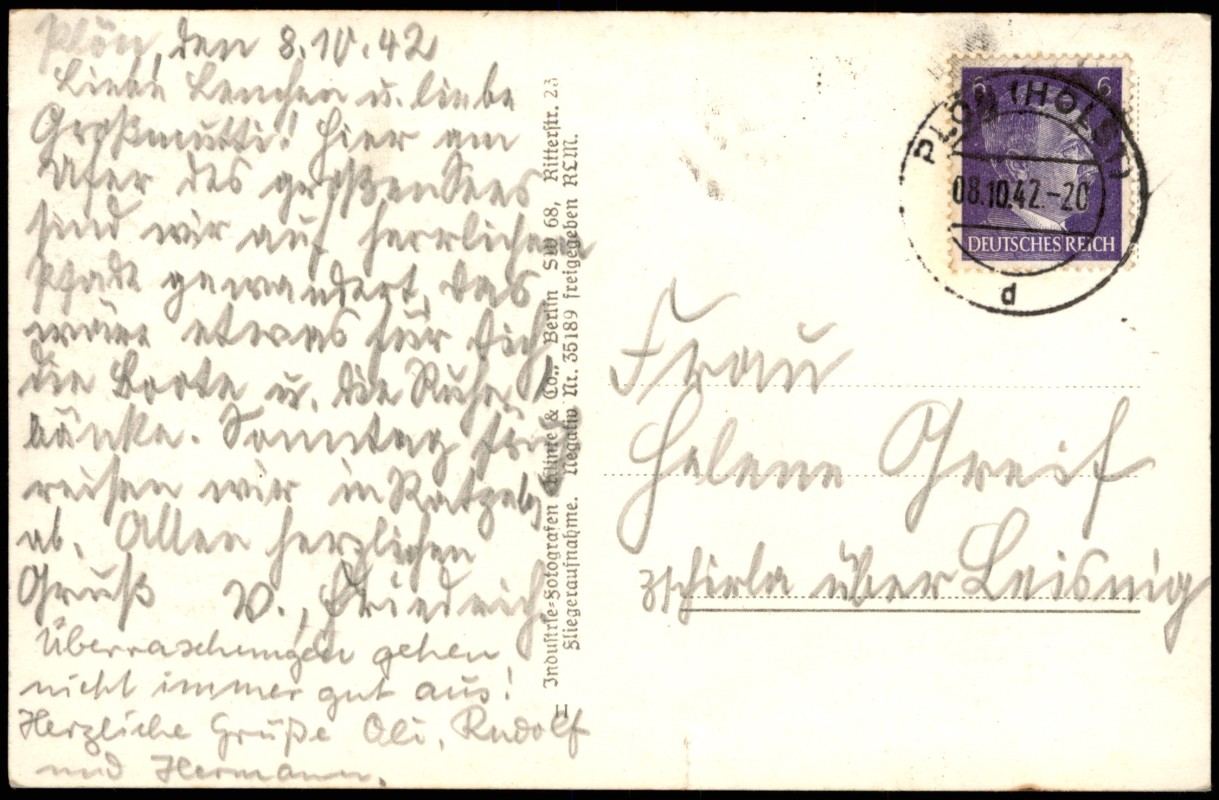 Plön, den 8.10.42
Liebe Lenchen u. liebe
Großmutti! Hier am
Ufer des großen Sees
sind wir auf herrlichem
Pfade gewandert, das
wäre etwas für Dich
die Boote u. die Ruhe
bänke. Sonntag früh
reisen wir in Ratzebg
ab. Allen herzlichen
Gruß V., Friedrich
Überraschungen gehen
nicht immer gut aus!
Herzliche Grüße Oli, Rudolf
und Hermann.
Industrie-Fotografen Klinke & Co., Berlin SW 68, Ritterstr. 23
Fliegeraufnahme. Negativ Nr. 35189 freigegeben RLM.
H
6 6
PLÖN (HOLST)
08.10.42.-20
d
DEUTSCHES REICH
Frau
Helene Greif
Zschirla über Leisnig